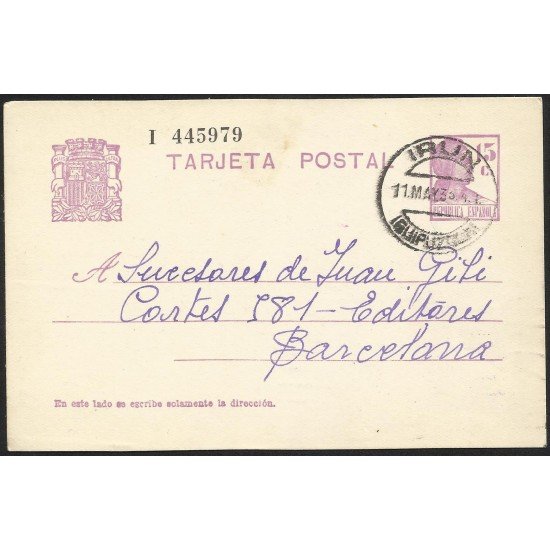 I 445979
TARJETA POSTAL
15 C.
REPUBLICA ESPAÑOLA
IRUN
11.MAY.35
(GUIPUZCOA)
A Sucesores de Juan Gili
Cortes 581-Editores
Barcelona
En este lado se escribe solamente la dirección.